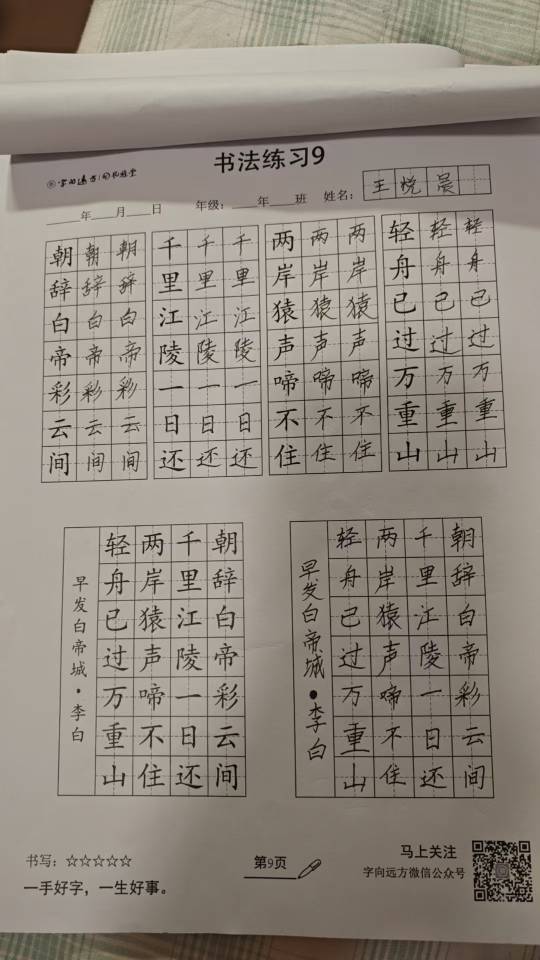 书法练习9
年 月 日 年级: 年 班 姓名: 王悦晨
朝朝朝
辞辞辞
白白白
帝帝帝
彩彩彩
云云云
间间间
千千千
里里里
江江江
陵陵陵
一一一
日日日
还还还
两两两
岸岸岸
猿猿猿
声声声
啼啼啼
不不不
住住住
轻轻轻
舟舟舟
已已已
过过过
万万万
重重重
山山山
朝辞白帝彩云间
千里江陵一日还
两岸猿声啼不住
轻舟已过万重山
早发白帝城·李白
朝辞白帝彩云间
千里江陵一日还
两岸猿声啼不住
轻舟已过万重山
早发白帝城·李白
书写: ☆☆☆☆☆
一手好字，一生好事。
第9页
马上关注
字向远方微信公众号